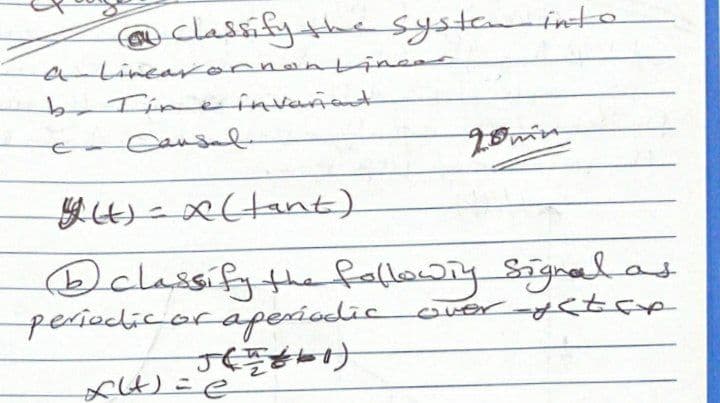 (a) classify the system into
a - Linear or non Linear
b - Time invariant
c - Causal
20 min
y(t) = x(tant)
(b) classify the following signal as
periodic or aperiodic over
x(t) = e^J(π/2 t - 1)